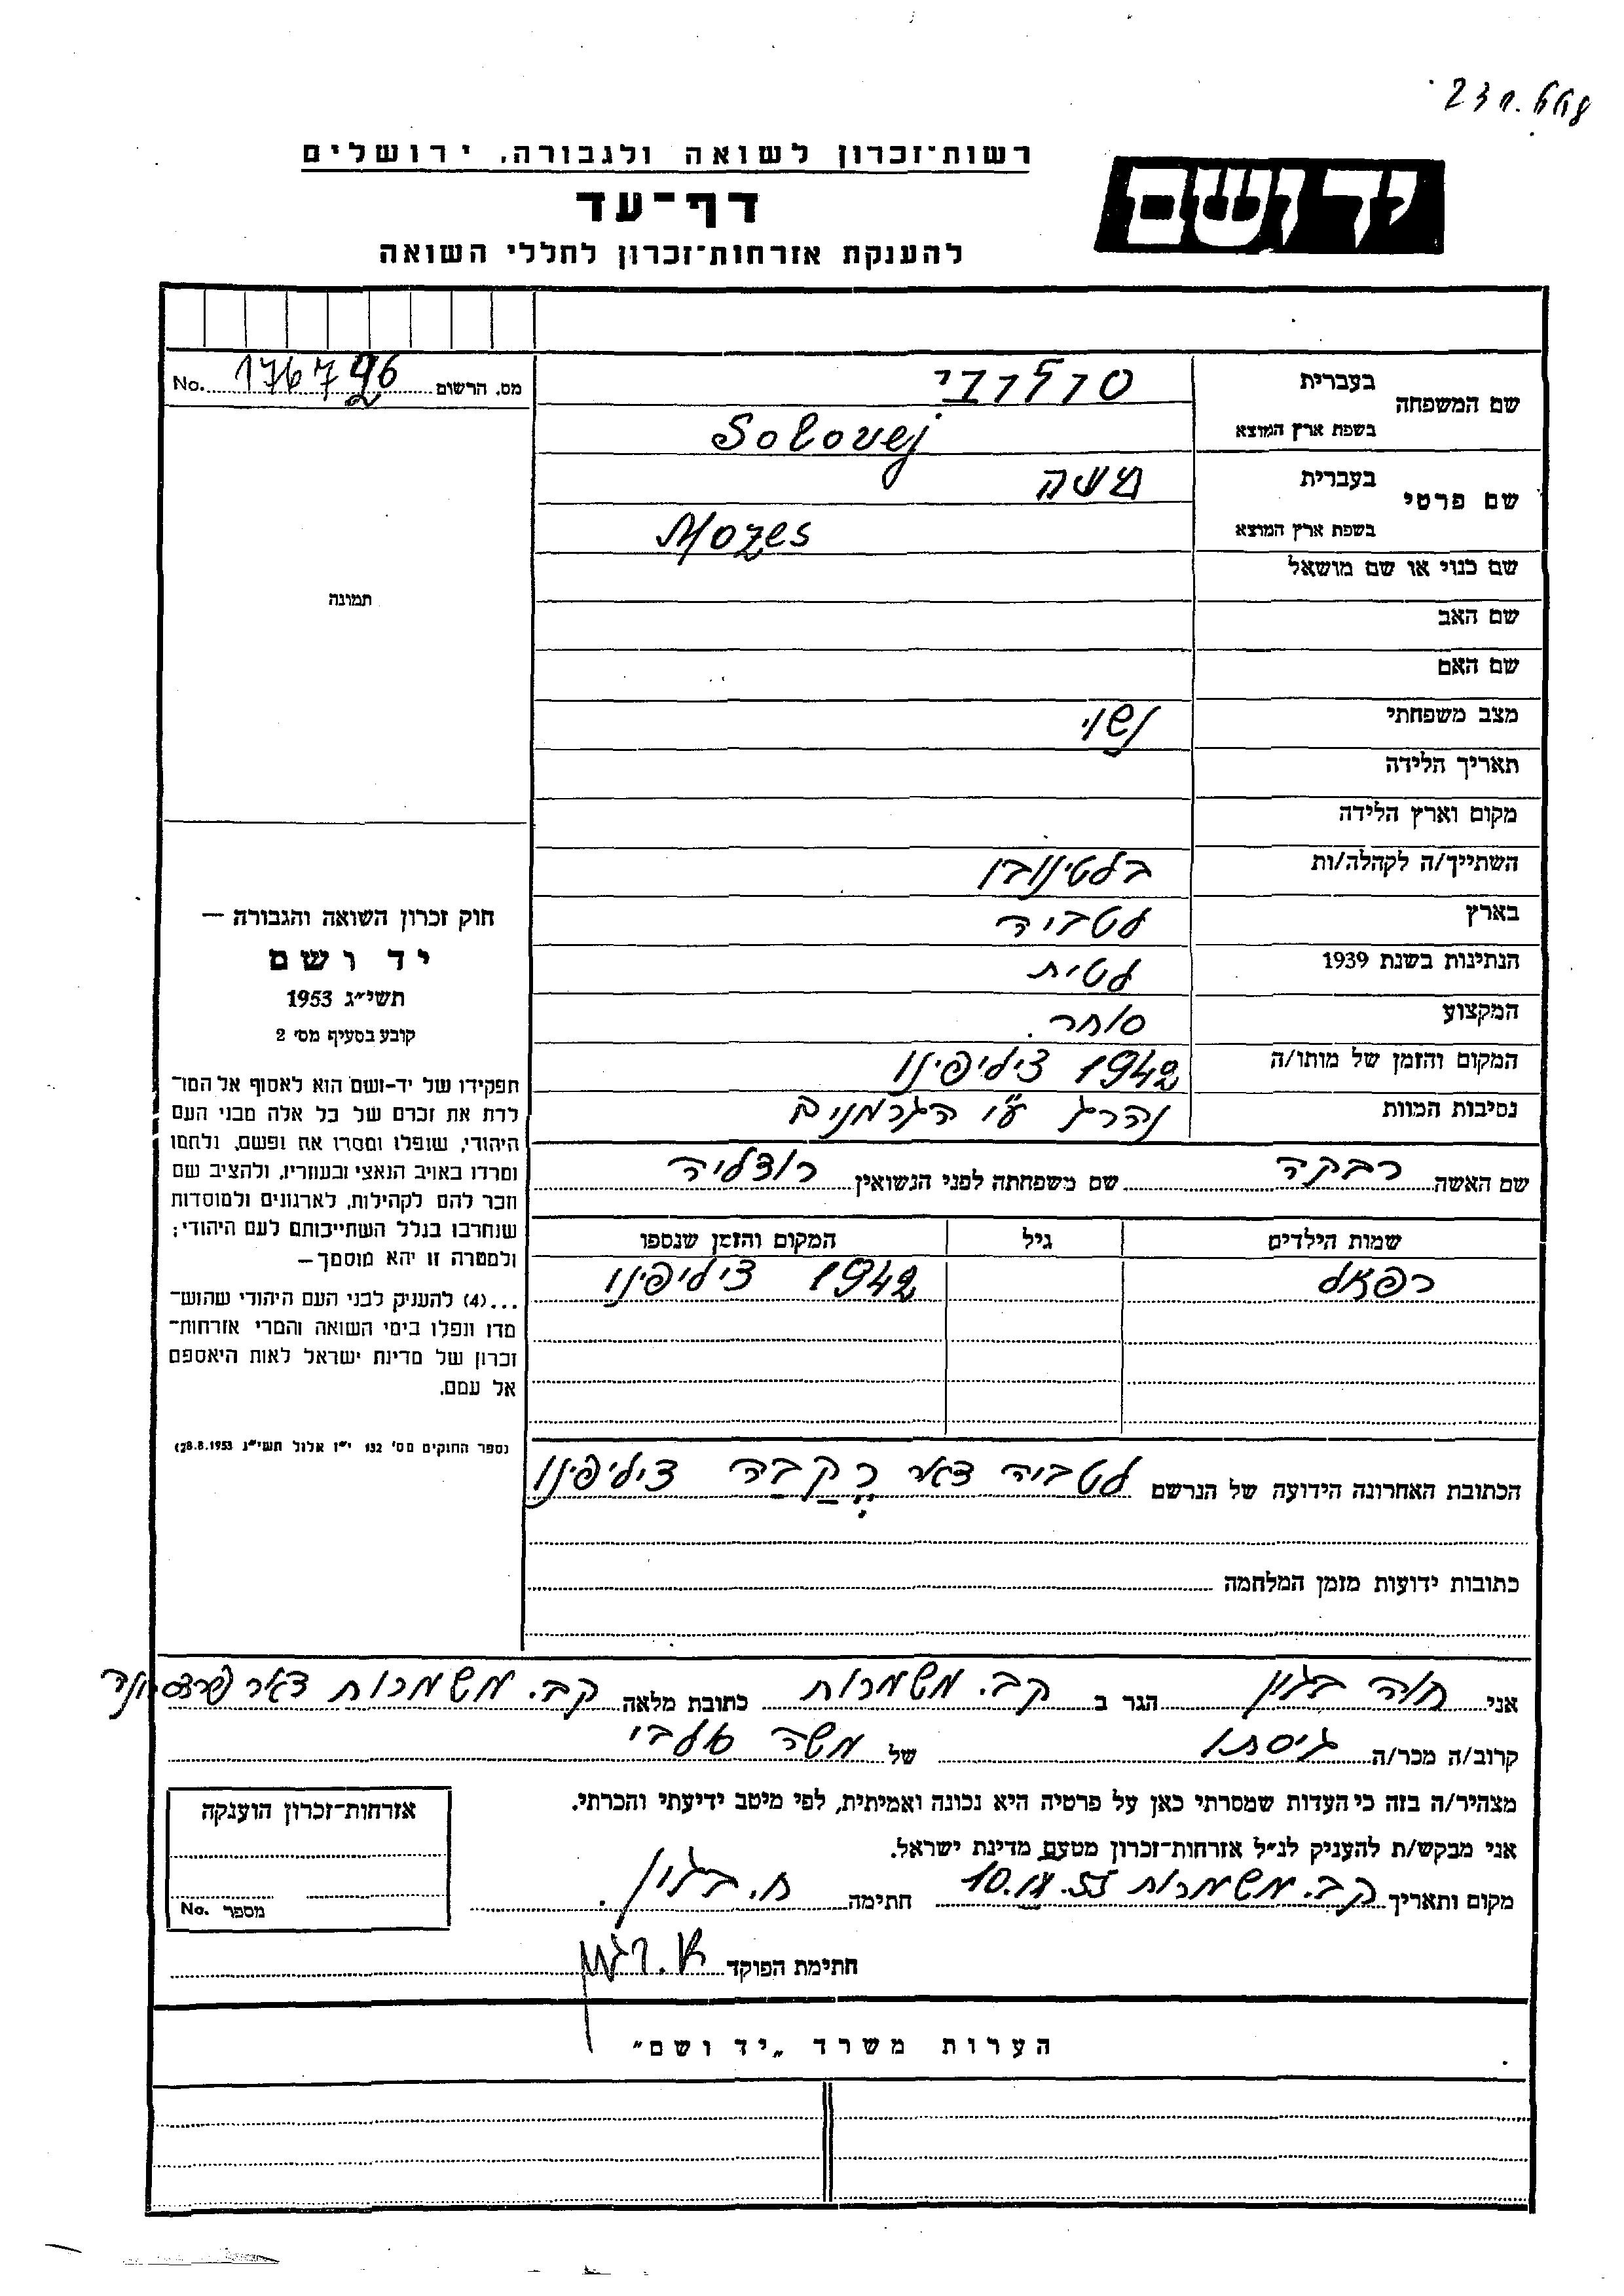 231.668
רשות־זכרון לשואה ולגבורה, ירושלים
יד ושם
דף־עד
להענקת אזרחות־זכרון לחללי השואה
מס. הרשום No. 176796
שם המשפחה בעברית סולובי
בשפת ארץ המוצא Solovej
שם פרטי בעברית משה
בשפת ארץ המוצא Mozes
שם כנוי או שם מושאל
שם האב
שם האם
מצב משפחתי נשוי
תאריך הלידה
מקום וארץ הלידה
השתייך/ה לקהלה/ות בלטינובו
בארץ לטביה
הנתינות בשנת 1939 לטית
המקצוע סוחר.
המקום והזמן של מותו/ה 1942 ציליפינו
נסיבות המוות נהרג ע"י הגרמנים
שם האשה רבקה שם משפחתה לפני הנשואין
שמות הילדים גיל המקום והזמן שנספו
רפאל 1942 ציליפינו
הכתובת האחרונה הידועה של הנרשם לטביה דאר ציליפינו
כתובות ידועות מזמן המלחמה
תמונה
חוק זכרון השואה והגבורה —
יד ושם
תשי״ג 1953
קובע בסעיף מס׳ 2
תפקידו של יד-ושם הוא לאסוף אל המו־
לדת את זכרם של כל אלה מבני העם
היהודי, שנפלו ומסרו את נפשם, נלחמו
ומרדו באויב הנאצי ובעוזריו, ולהציב שם
וזכר להם לקהילות, לארגונים ולמוסדות
שנחרבו בגלל השתייכותם לעם היהודי;
ולמטרה זו יהא מוסמך—
...(4) להעניק לבני העם היהודי שהוש־
מדו ונפלו בימי השואה והמרי אזרחות־
זכרון של מדינת ישראל לאות היאספם
אל עמם.
(ספר החוקים מס׳ 132 י״ז אלול תשי״ג 28.8.1953)
אני חוה הגר ב קב. משמרות כתובת מלאה קב. משמרות דאר
קרוב/ה מכר/ה גיסתו של משה
מצהיר/ה בזה כי העדות שמסרתי כאן על פרטיה היא נכונה ואמיתית, לפי מיטב ידיעתי והכרתי.
אני מבקש/ת להעניק לנ״ל אזרחות־זכרון מטעם מדינת ישראל.
מקום ותאריך קב. משמרות 10.IX.55 חתימה
חתימת הפוקד
אזרחות־זכרון הוענקה
מספר No.
הערות משרד „יד ושם״